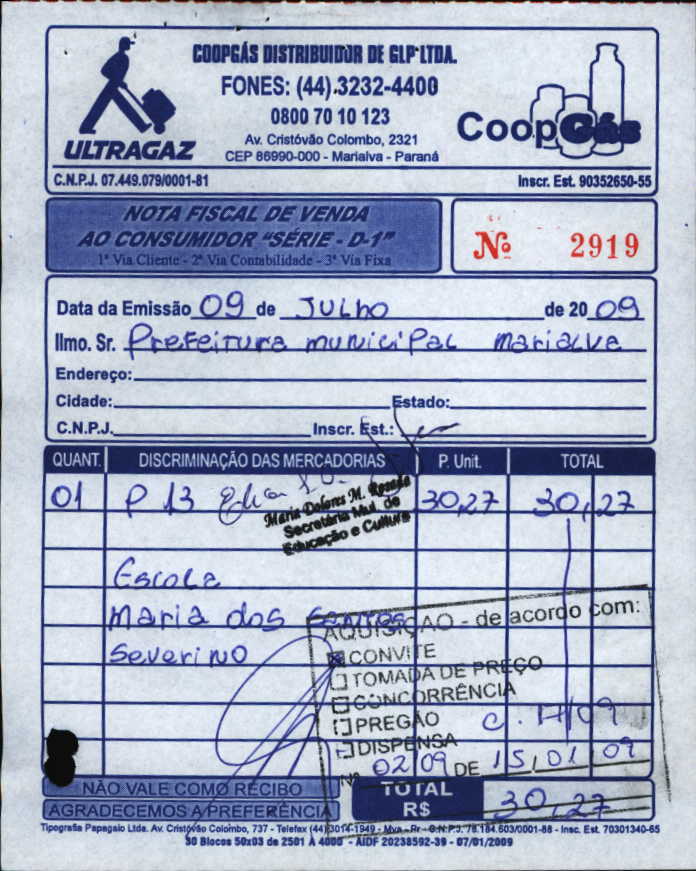 COOPGÁS DISTRIBUIDOR DE GLP LTDA.
FONES: (44) 3232-4400
0800 70 10 123
Av. Cristóvão Colombo, 2321
CEP 86990-000 - Marialva - Paraná
ULTRAGAZ
CoopGás
C.N.P.J. 07.449.079/0001-81
Inscr. Est. 90352650-55
NOTA FISCAL DE VENDA
AO CONSUMIDOR "SÉRIE - D-1"
1ª Via Cliente - 2ª Via Contabilidade - 3ª Via Fixa
Nº 2919
Data da Emissão 09 de JULHO de 20 09
Ilmo. Sr. Prefeitura municipal marialva
Endereço:
Cidade: Estado:
C.N.P.J. Inscr. Est.:
QUANT. DISCRIMINAÇÃO DAS MERCADORIAS P. Unit. TOTAL
01 P 13 30,27 30,27
Maria Dolores M.
Secretária Mul. de
Educação e Cultura
Escola
maria dos Santos
Severino
AQUISIÇÃO - de acordo com:
CONVITE
TOMADA DE PREÇO
CONCORRÊNCIA
PREGÃO
DISPENSA
Nº 02/09 DE 15/01/09
NÃO VALE COMO RECIBO
AGRADECEMOS A PREFERÊNCIA
TOTAL R$ 30,27
Tipografia Papagaio Ltda. Av. Cristóvão Colombo, 737 - Telefax (44) 3014-1949 - Mva - Pr - C.N.P.J. 78.184.603/0001-88 - Insc. Est. 70301340-65
30 Blocos 50x03 de 2501 À 4000 - AIDF 20238592-39 - 07/01/2009